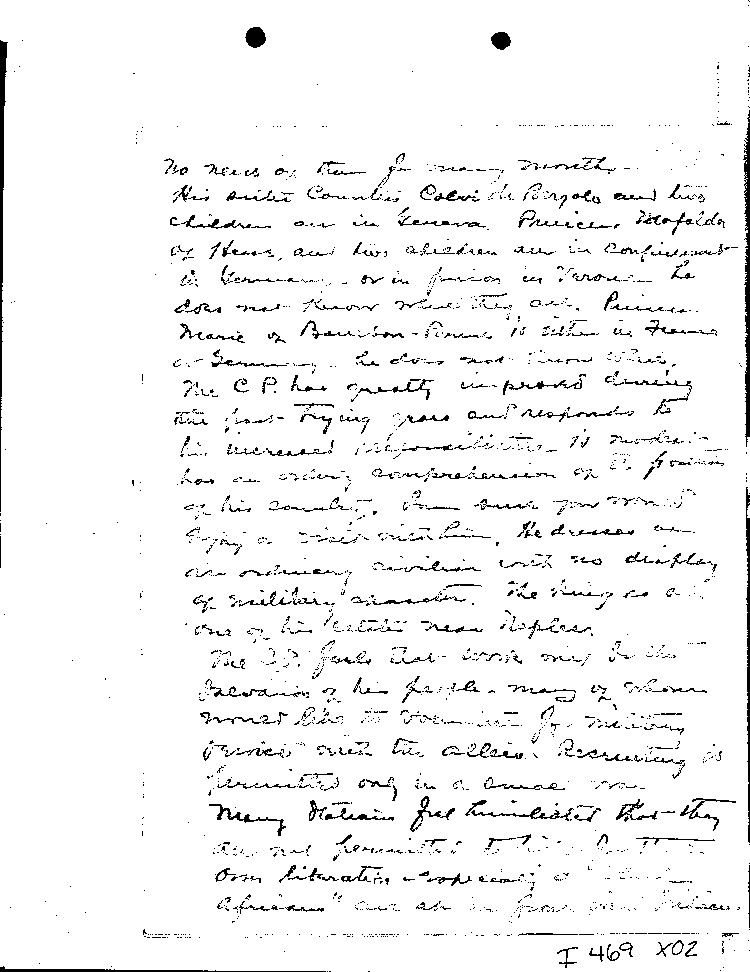 no news of them for many months.
His sister Countess Calvi de Bergolo and two
children are in Geneva. Princess Mafalda
of Hesse, and two children are in confinement
in Germany - or in prison in Verona he
does not know where they are. Princess
Marie of Bourbon-Parma is either in France
or Germany - he does not know where.
The C P. has greatly improved during
the past trying years and responds to
his increased responsibilities. Is modest -
has an comprehension of the position
of his country. I am sure you would
enjoy a visit with him. He dresses as
an ordinary civilian with no display
of military character. The King is at
one of his estates near Naples.
The C.P. feels that work may be the
salvation of his people - many of whom
would like to volunteer for military
service with the allies. Recruiting is
permitted only in a small way
Many Italians feel humiliated that they
are not permitted to fight for their
own liberation - especially as
Africans" are at the front
I 469 X02